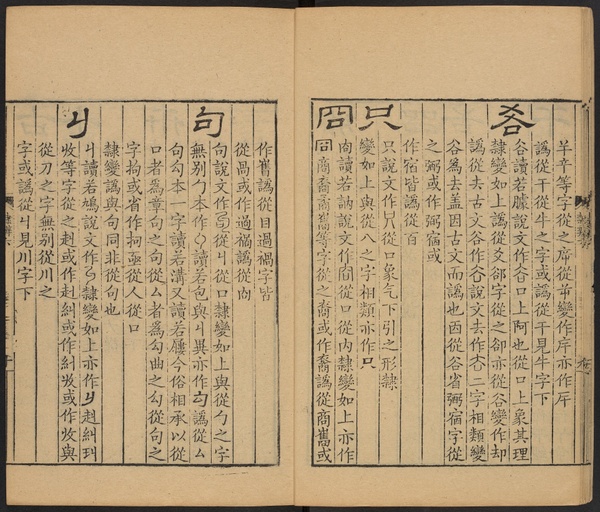 辛等字從之從變作斥亦作斥
譌從干從牛之字或譌從干見牛字下
谷
谷讀若臄說文作谷口上阿也從口上象其理
隸變如上譌從爻卻字從之卻亦從谷變作却
譌從去古文谷作說文去作二字相類變
谷為去盖因古文而譌也㐁從谷省弼宿字從
之弼或作弼宿或
作宿皆譌從百
只
只說文作只從口象气下引之形隸
變如上與從八之字相類亦作只
冏
㕯讀若訥說文作㕯從口從内隸變如上亦作
冏商裔矞巂等字從之裔或作裔譌從商巂或
作巂譌從目過禍字皆
從咼或作過禍譌從冏
句
句說文作句從丩從口隸變如上與從勹之字
無別勹本作勹讀若包與丩異亦作勾譌從厶
句勾本一字讀若溝又讀若屨今俗相承以從
口者為章句之句從厶者為勾曲之勾從句之
字拘或省作拘亟從人從口
隸變譌與句同非從句也
丩
丩讀若鳩說文作丩隸變如上亦作丩赳糾
收等字從之赳或作赳糾或作糾收或作收與
從刀之字無別從川之
字或譌從丩見川字下